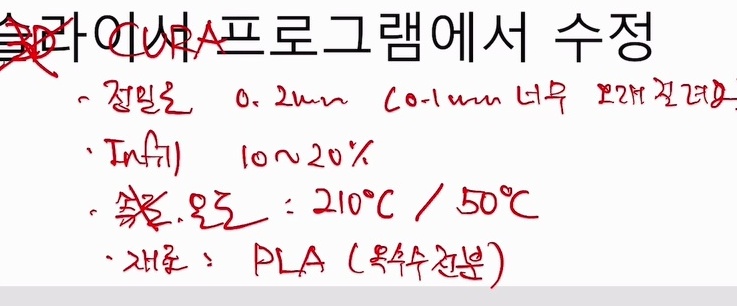 슬라이서 프로그램에서 수정
CURA
· 정밀도 0.2mm (0.1mm 너무 오래 걸려요
· Infill 10~20%
· 온도 : 210°C / 50°C
· 재료 : PLA (옥수수 전분)